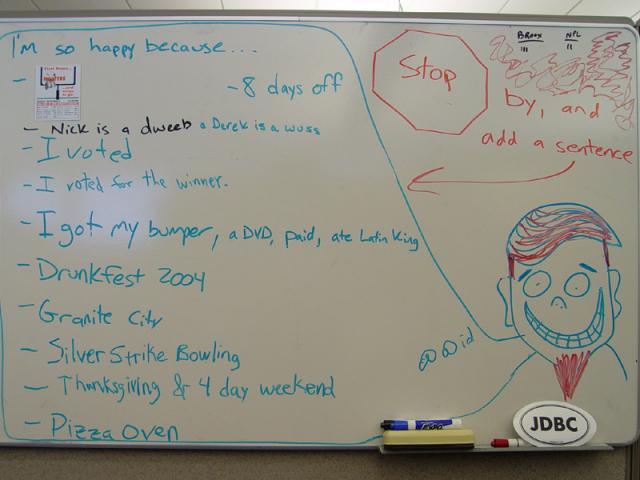 I'm so happy because...
- 8 days off
- Nick is a dweeb a Derek is a wuss
- I voted
- I voted for the winner.
- I got my bumper, a DVD, paid, ate Latin King
- Drunkfest 2004
- Granite City
- Silver Strike Bowling
- Thanksgiving & 4 day weekend
- Pizza Oven
Stop
by, and
add a sentence
NPL
III
II
JDBC
EXPO